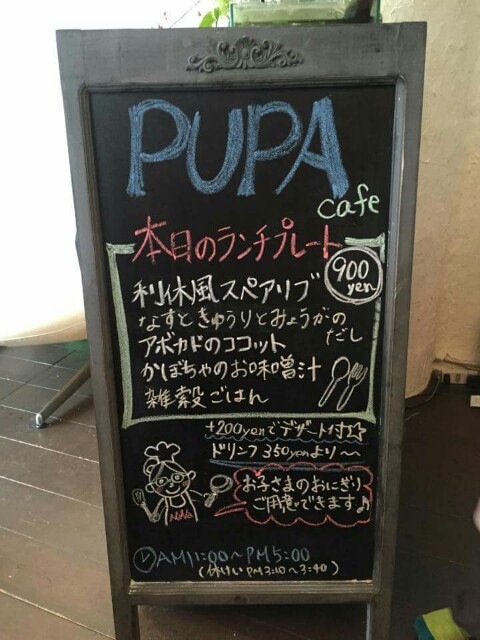 PUPA
cafe
本日のランチプレート
900
yen
利休風スペアリブ
なすときゅうりとみょうがの
だし
アボカドのココット
かぼちゃのお味噌汁
雑穀ごはん
+200yenでデザート付☆
ドリンク350yenより〜
お子さまのおにぎり
ご用意できます♪
AM11:00〜PM5:00
(休けいPM3:10〜3:40)